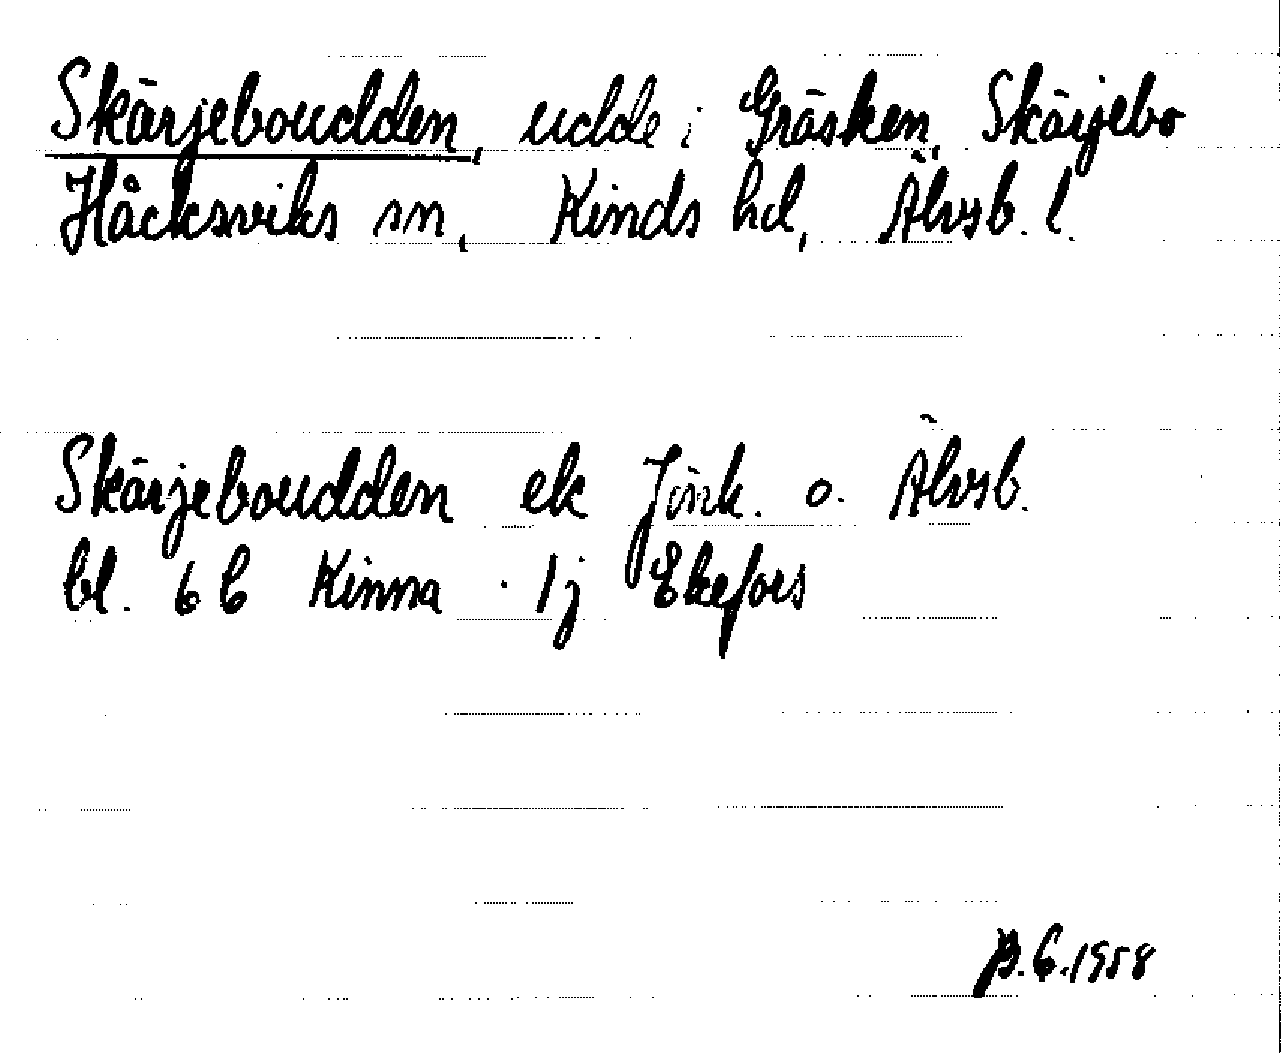 Skärjeboudden, udde i Gräsken, Skärjebo
Håcksviks sn, Kinds hd, Älvsb. l.
Skärjeboudden ek Jönk. o. Älvsb.
bl. 6 b Kinna · 1j Ekefors
B.G.1958